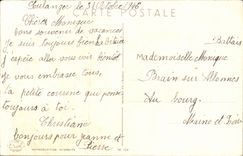 Coulanges le 31 Octobre 1916
CARTE POSTALE
Chère Monique
bons souvenir de vacances
je suis toujours bien
j'espère aller vous voir bientôt
je vous embrasse tous
la petite cousine qui pense
toujours à toi.
Christiane
bonjours pour jeanne et
Pierre
Mademoiselle Monique
Brain sur Allonnes
Au bourg
Maine et Loire